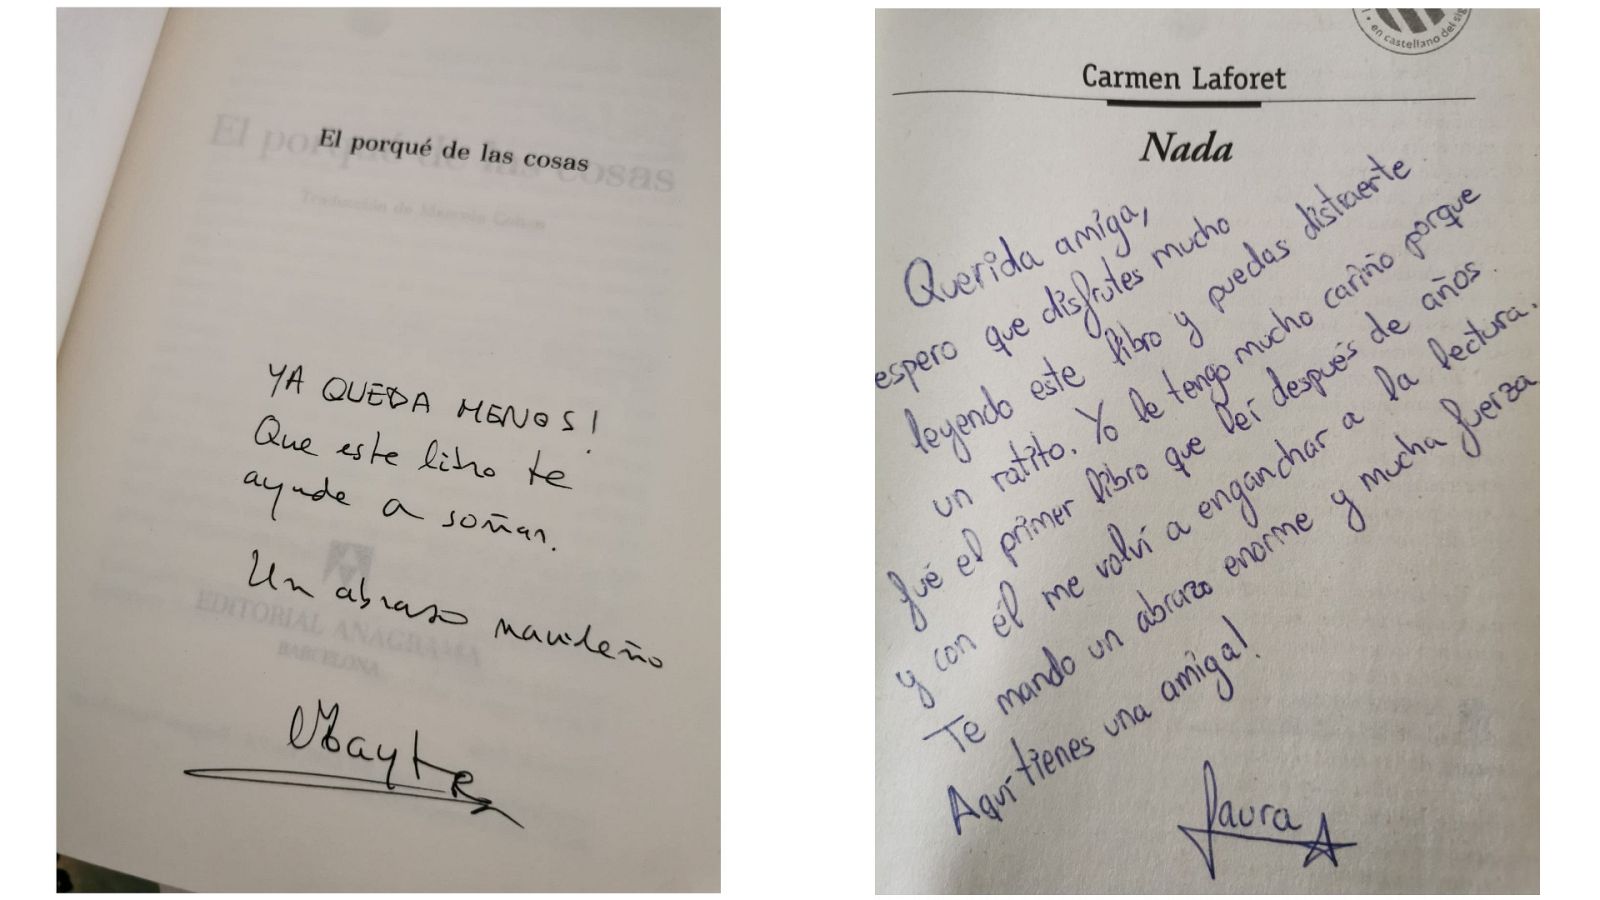 El porqué de las cosas
El porqué de las cosas
Traducción de Marcelo Cohen
YA QUEDA MENOS!
Que este libro te
ayude a soñar.
Un abrazo navideño
EDITORIAL ANAGRAMA
BARCELONA
Mayte
en castellano del sig
Carmen Laforet
Nada
Querida amiga,
espero que disfrutes mucho
leyendo este libro y puedas distraerte
un ratito. Yo le tengo mucho cariño porque
fué el primer libro que leí después de años
y con él me volví a enganchar a la lectura.
Te mando un abrazo enorme y mucha fuerza
Aquí tienes una amiga!
Laura